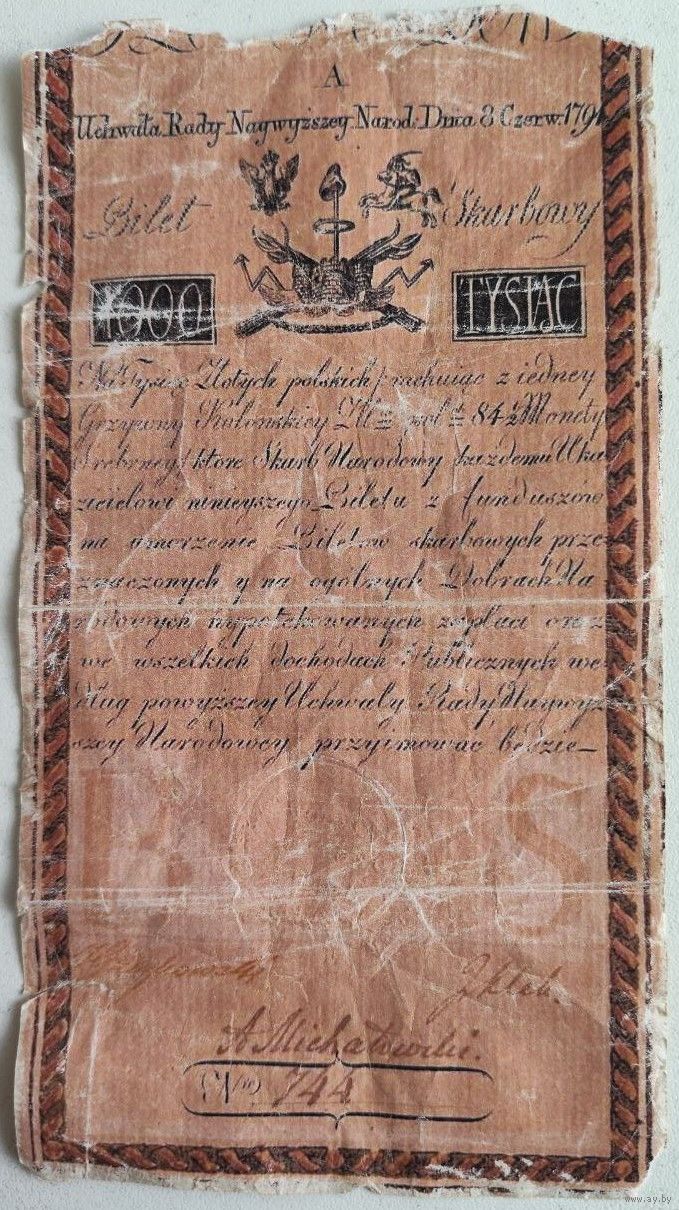 A
Uchwała Rady Naywyższey Narod. Dnia 8 Czerw. 1794
Bilet Skarbowy
1000 TYSIĄC
Na Tysiąc Złotych polskich, rachuiąc z iedney
Grzywny Kolonskiey Złł pol 84½ Monety
Srebrney, ktore Skarb Narodowy każdemu Oka
zicielowi ninieyszego Biletu z funduszow
na umorzenie Biletow skarbowych prze
znaczonych y na ogolnych Dobrach Na
rodowych hypotekowanych zapłaci oraz
we wszelkich dochodach Publicznych we
dług powyższey Uchwały Rady Naywyż
szey Narodowey przyimować będzie
S
A Michałowski.
No 744
www.ay.by